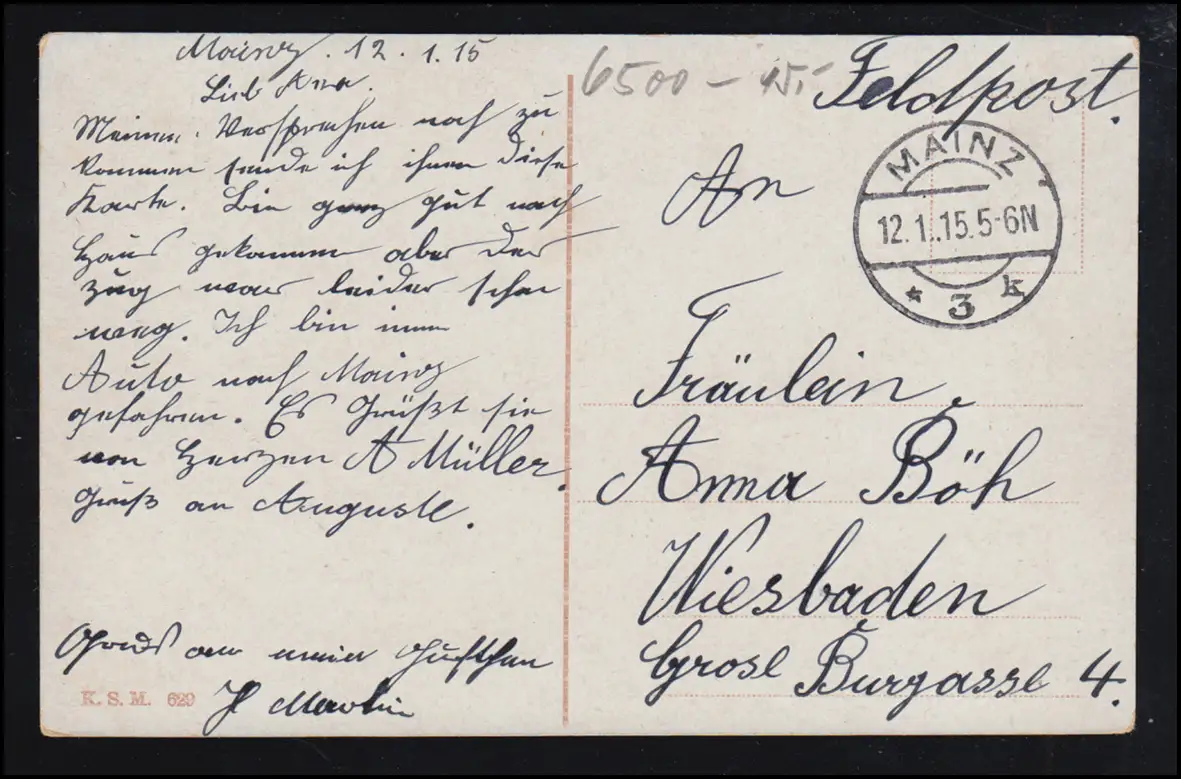 Mainz. 12.1.15
Lieb Anna.
Meinen Versprechen nach zu
kommen sende ich ihnen diese
Karte. Bin ganz gut nach
Haus gekommen aber der
Zug war leider schon
weg. Ich bin
Auto nach Mainz
gefahren. Es Grüßt sie
von Herzen A Müller.
Gruß an Auguste.
Gruß an
Martin
K. S. M. 629
6500 - 15.-
Feldpost.
MAINZ
12.1..15.5-6N
* 3 k
An
Fräulein
Anna Böh
Wiesbaden
Grose Burgasse 4.